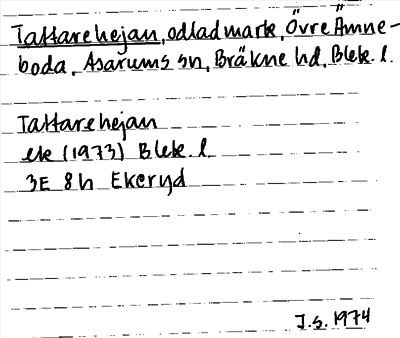 Tattarehejan, odlad mark, Övre Ämne-
boda, Asarums sn, Bräkne hd, Blek. l.
Tattarehejan
ek (1973) Blek. l
3E 8h Ekeryd
J.S. 1974